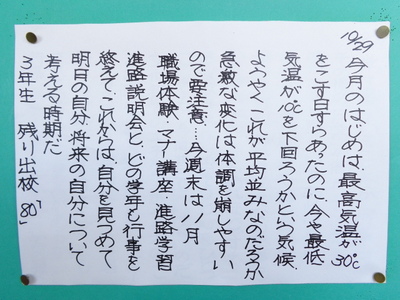 10/29
今月のはじめは、最高気温が30℃
をこす日すらあったのに、今や最低
気温が10℃を下回ろうかという気候、
ようやくこれが平均並みなのだろうが
急激な変化は体調を崩しやすい
ので要注意…今週末は11月
職場体験、マナー講座・進路学習
進路説明会と、どの学年も行事を
終えて、これからは、自分を見つめて
明日の自分、将来の自分について
考える時期だ
3年生 残り出校 80日